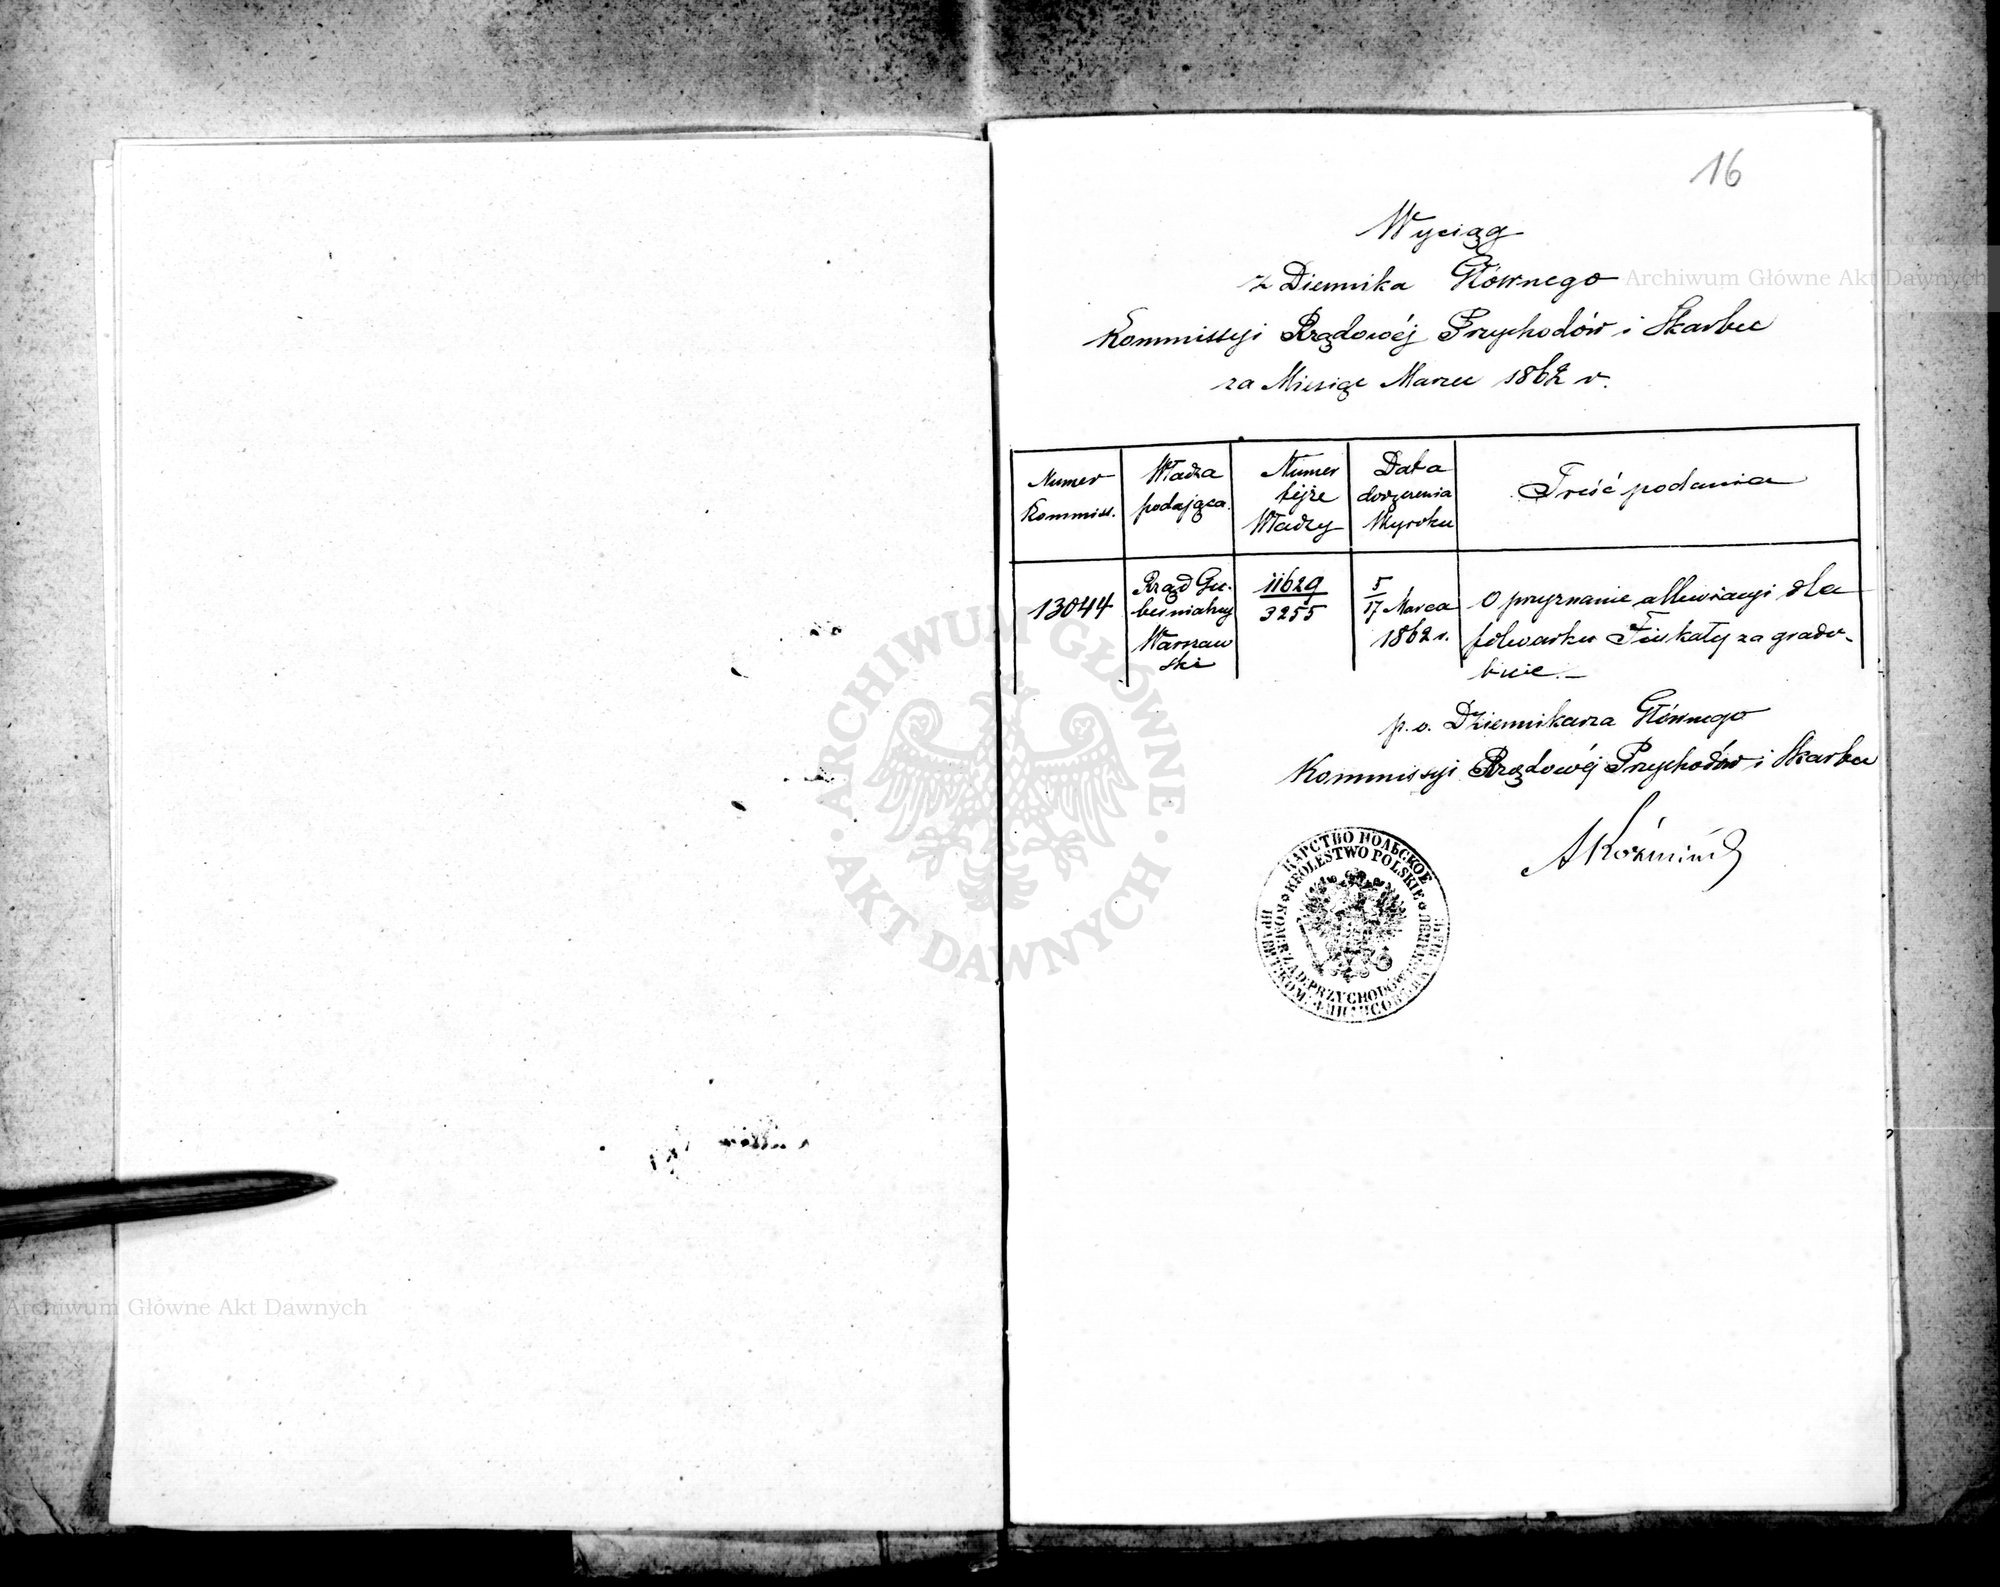 16
Wyciąg
z Diennika Głównego
Kommissyi Rządowéj Przychodów i Skarbu
za Miesiąc Marzec 1862 r.
Numer
Kommiss.
Władza
podająca.
Numer
téjże
Władzy
Data
doręczenia
Wyroku
Treść podania
13044
Rząd Gu-
bernialny
Warszaw
ski
11629
3255
5
17 Marca
1862 r.
O przyznanie allewiacyi dla
folwarku Fiskały za grado-
bicie.-
p. o. Dziennikarza Głównego
Kommissyi Rządowéj Przychodów i Skarbu
AKoźmiń
ЦАРСТВО ПОЛЬСКОЕ
KRÓLESTWO POLSKIE
KOMM: RZĄD: PRZYCHODÓW
ПРАВИТ: КОМ: ФИНАНСОВЪ
ARCHIWUM GŁÓWNE
AKT DAWNYCH
Archiwum Główne Akt Dawnych
Archiwum Główne Akt Dawnych